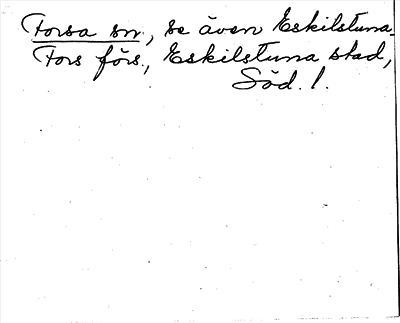 Forsa sn., se även Eskilstuna
Fors förs., Eskilstuna stad,
Söd. l.